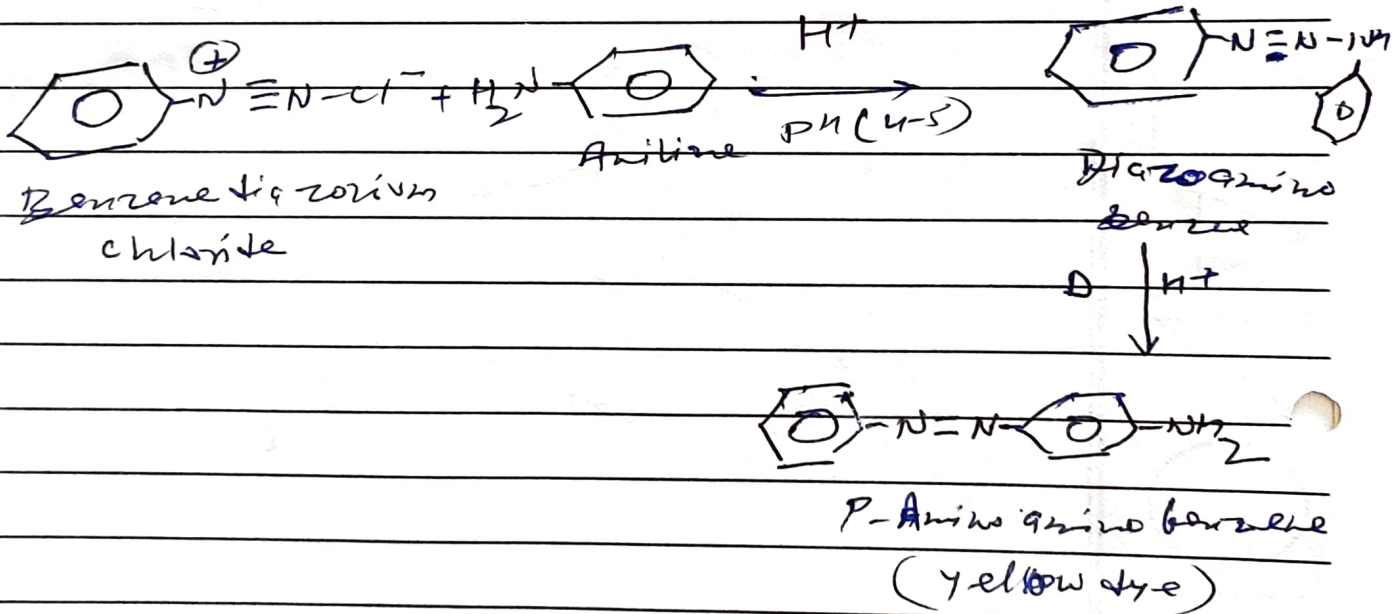 H+
⊕
N≡N-Cl⁻ + H₂N
N≡N-NH
pH (4-5)
Aniline
Benzene diazonium
chloride
Diazoamino
benzene
Δ H+
N=N NH₂
P-Amino amino benzene
(yellow dye)